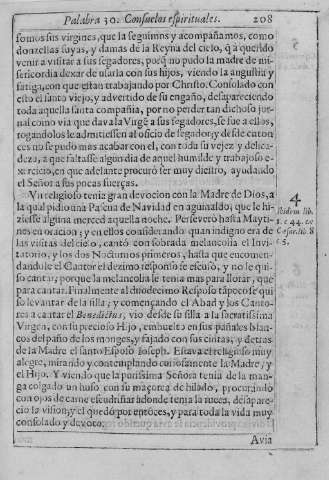 Palabra 30. Consuelos espirituales. 208
somos sus virgines, que la seguimos y acompañamos, como
donzellas suyas, y damas de la Reyna del cielo, q̃ a querido
venir a visitar a sus segadores, porq̃ no pudo la madre de mi-
sericordia dexar de usarla con sus hijos, viendo la angustia y
fatiga, con que estan trabajando por Christo. Consolado con
esto el santo viejo, y advertido de su engaño, desapareciendo
toda aquella santa compañia, por no perder tan dichoso jor-
nal como via que dava la Virgẽ a sus segadores, se fue a ellos,
rogandolos le admitiessen al oficio de segador; y desde enton
ces no se pudo mas acabar con el, con toda su vejez y delica-
deza, a que faltasse algun dia de aquel humilde y trabajoso e-
xercicio, en que adelante procurò ser muy diestro, ayudando
el Señor a sus pocas fuerças.
Un religioso tenia gran devocion con la Madre de Dios, a
la qual pidio una Pascua de Navidad en aguinaldo, que le hi-
ziesse alguna merced aquella noche. Perseverò hasta Mayti-
nes en oracion; y en ellos considerando quan indigno era de
las visitas del cielo, cantò con sobrada melancolia el Invi-
tatorio, y los dos Nocturnos primeros, hasta que encomen-
dandole el Cantor el dezimo responso se escusò, y no le qui-
so cantar, porque la melancolia le tenia mas para llorar, que
para cantar. Finalmente al duodecimo Responso tãpoco se qui
so levantar de la silla; y començando el Abad y los Canto-
res a cantar el Benedictus, vio desde su silla a la sacratissima
Virgen, con su precioso Hijo, embuelto en sus pañales blan-
cos del paño de los monges, y fajado con sus cintas, y detras
de la Madre el santo Esposo Joseph. Estava el religioso muy
alegre, mirando y contemplando curiosamente la Madre, y
el Hijo. Y viendo que la purissima Señora tenia de la man-
ga colgado un huso con su maçorca de hilado, procurando
con ojos de carne escudriñar adonde tenia la rueca, desapare-
cio la vision, y el quedò por entõces, y para toda la vida muy
consolado y devoto.
Avia
4
lib.
1. c. 44.
Cesar. lib. 8
c. 5.